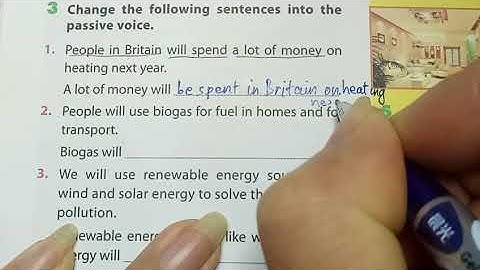 3 Change the following sentences into the
passive voice.
1. People in Britain will spend a lot of money on
heating next year.
A lot of money will be spent in Britain on heating
2. People will use biogas for fuel in homes and
transport.
Biogas will
3. We will use renewable energy
wind and solar energy to solve
pollution.
like
will
晨光